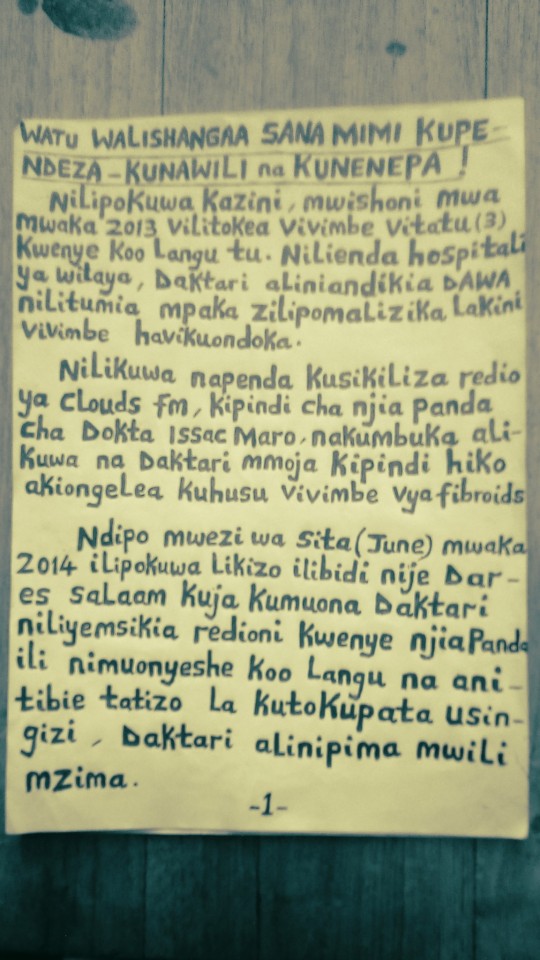 WATU WALISHANGAA SANA MIMI KUPE-
NDEZA - KUNAWILI na KUNENEPA !
Nilipokuwa kazini, mwishoni mwa
mwaka 2013 vilitokea vivimbe vitatu (3)
kwenye koo langu tu. Nilienda hospitali
ya wilaya, Daktari aliniandikia DAWA
nilitumia mpaka zilipomalizika lakini
vivimbe havikuondoka.
Nilikuwa napenda kusikiliza redio
ya Clouds fm, kipindi cha njia panda
cha Dokta Issac Maro, nakumbuka ali-
kuwa na Daktari mmoja kipindi hiko
akiongelea kuhusu vivimbe vya fibroids
Ndipo mwezi wa sita (June) mwaka
2014 ilipokuwa likizo ilibidi nije Dar-
es salaam kuja kumuona Daktari
niliyemsikia redioni kwenye njia Panda
ili nimuonyeshe koo langu na ani-
tibie tatizo la kutokupata usin-
gizi, Daktari alinipima mwili
mzima.
-1-